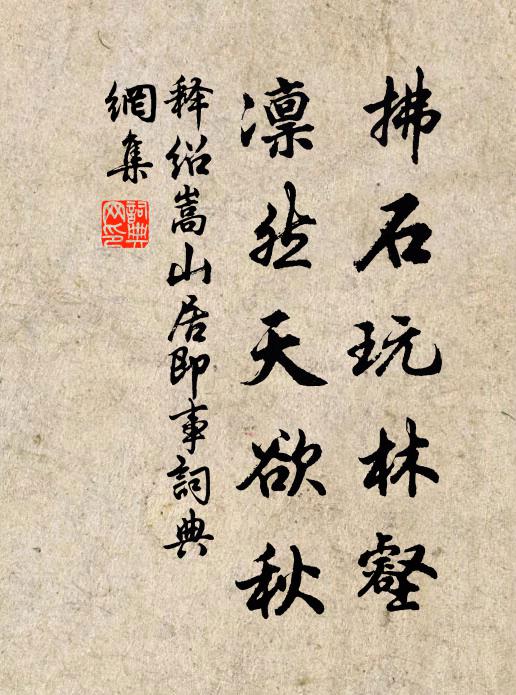 拂石玩林壑
凛然天欲秋
释绍嵩山居即事詞典
網集
詞典
网印